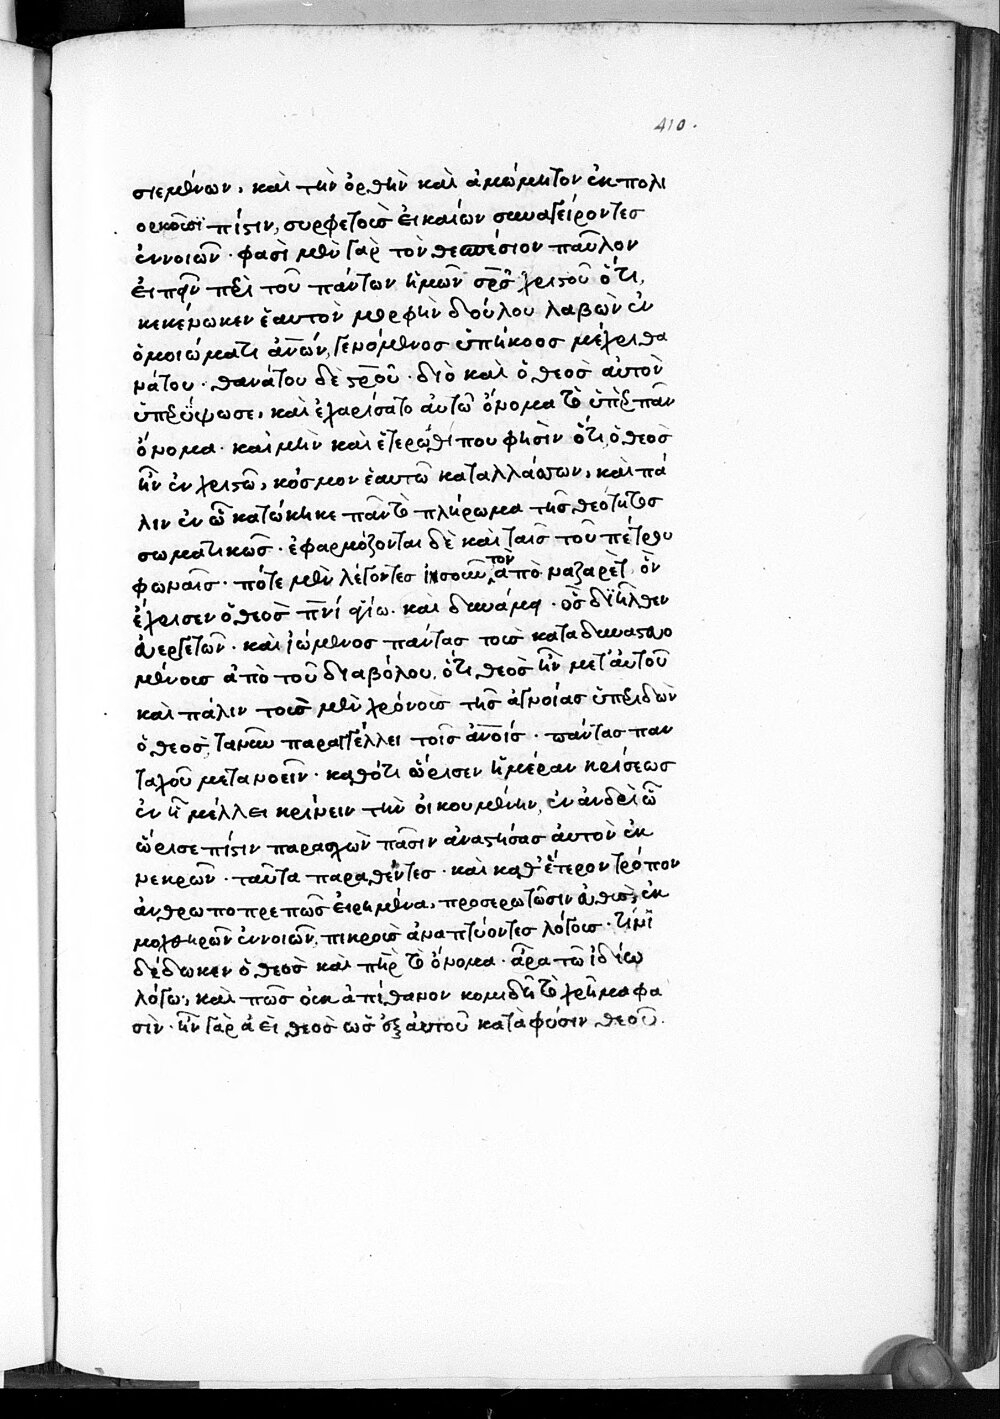 410.
σιεμένων, καὶ τὴν ὀρθὴν καὶ ἀμώμητον ἐκπολι
ορκοῦσι πίστιν, συρφετοὺς εἰκαίων συναγείροντες
ἐννοιῶν · φασὶ μὲν γὰρ τὸν θεσπέσιον παῦλον
εἰπεῖν περὶ τοῦ πάντων ἡμῶν σρ̅ς χριστοῦ ὅτι,
κεκένωκεν ἑαυτὸν μορφὴν δούλου λαβὼν ἐν
ὁμοιώματι ἀν̅ων, γενόμενος ὑπήκοος μέχρι θα
νάτου · θανάτου δὲ στρ̅οῦ · διὸ καὶ ὁ θεὸς αὐτὸν
ὑπερύψωσε, καὶ ἐχαρίσατο αὐτῷ ὄνομα τὸ ὑπὲρ πᾶν
ὄνομα · καὶ μὴν καὶ ἑτέρωθί που φησὶν ὅτι, ὁ θεὸς
ἦν ἐν χριστῷ, κόσμον ἑαυτῷ καταλλάσσων, καὶ πά
λιν ἐν ᾧ κατώκηκε πᾶν τὸ πλήρωμα τῆς θεότητος
σωματικῶς · ἐφαρμόζονται δὲ καὶ ταῖς τοῦ πέτρου
φωναῖς · πότε μὲν λέγοντες ἰησοῦν τὸν ἀπὸ ναζαρὲτ, ὃν
ἔχρισεν ὁ θεὸς πν̅ι ἁγίω · καὶ δυνάμει · ὃς διῆλθεν
εὐεργετῶν · καὶ ἰώμενος πάντας τοὺς καταδυναστευο
μένους ἀπὸ τοῦ διαβόλου, ὅτι θεὸς ἦν μετ' αὐτοῦ
καὶ πάλιν τοὺς μὲν χρόνους τῆς ἀγνοίας ὑπεριδὼν
ὁ θεὸς, τανῦν παραγγέλλει τοῖς ἀν̅οις · πάντας παν
ταχοῦ μετανοεῖν · καθότι ὥρισεν ἡμέραν κρίσεως
ἐν ᾗ μέλλει κρίνειν τὴν οἰκουμένην, ἐν ἀνδρὶ ᾧ
ὥρισε πίστιν παρασχὼν πᾶσιν ἀναστήσας αὐτὸν ἐκ
νεκρῶν · ταῦτα παραθέντες · καὶ καθ' ἕτερον τρόπον
ἀνθρωποπρεπῶς εἰρημένα, προσερωτῶσιν εὐθὺς, ἐκ
μοχθηρῶν ἐννοιῶν, πικροὺς ἀναπτύοντες λόγους · τίνι
δέδωκεν ὁ θεὸς καὶ πη̅ρ τὸ ὄνομα · ἆρα τῷ ἰδίω
λόγω, καὶ πῶς οὐκ ἀπίθανον κομιδῆ τὸ χρῆμα φα
σὶν · ἦν γὰρ ἀεὶ θεὸς ὡς ἐξ αὐτοῦ κατὰ φύσιν θεοῦ.